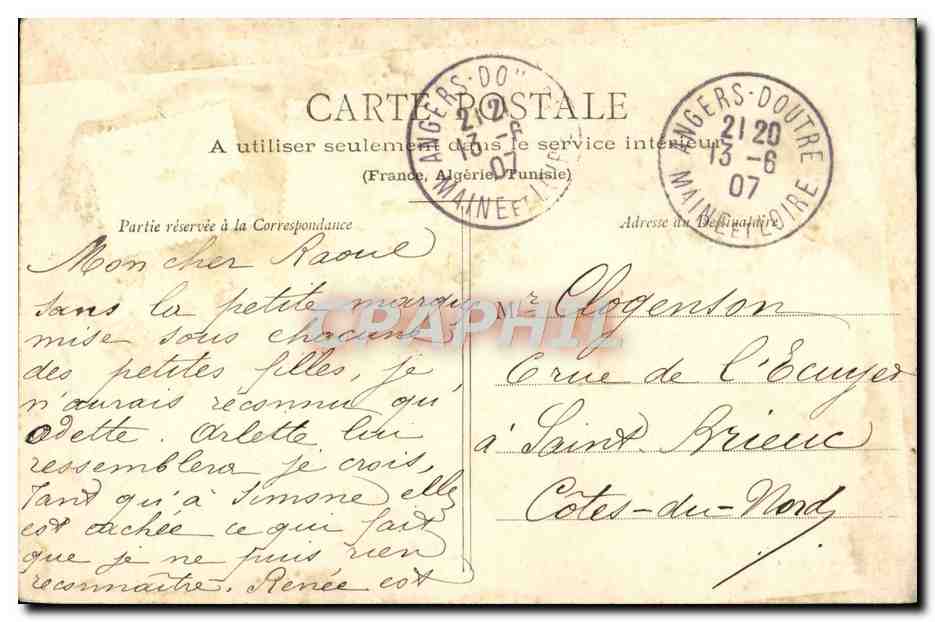 CARTE POSTALE
A utiliser seulement dans le service intérieur
(France, Algérie, Tunisie)
ANGERS-DOU
21 2
13 -6
07
MAINE ET LOIRE
ANGERS-DOUTRE
21 20
13 -6
07
MAINE ET LOIRE
Partie réservée à la Correspondance
Adresse du Destinataire
Mon cher Raoul
sans la petite marque
mise sous chacune
des petites filles, je
n'aurais reconnu qu'
Odette. Arlette lui
ressemblera je crois,
Tant qu'à Simone elle
est cachée ce qui fait
que je ne puis rien
reconnaître. Renée est
Mr Clogenson
6 rue de l'Ecuyer
à Saint Brieuc
Côtes-du-Nord
CPAPHIL